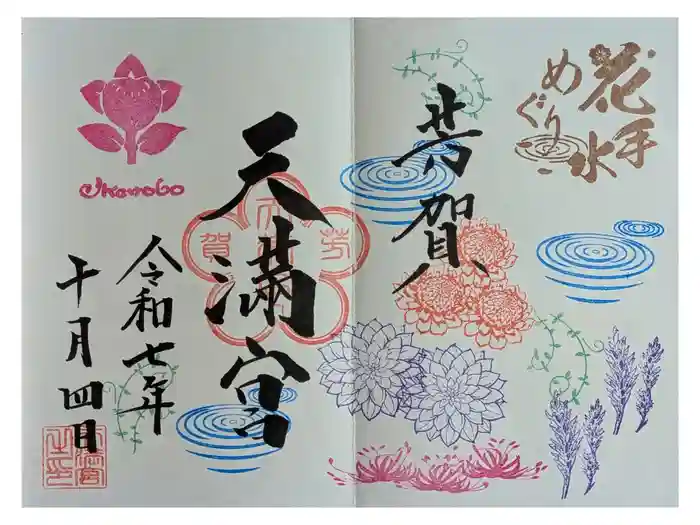 花手水
めぐり
芳賀
天満宮
令和七年
十月四日
Ikenobo
天
芳
賀